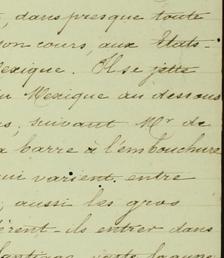 , dans presque toute
son cours, aux États-
exique. Il se jette
u Mexique au dessous
s, suivant Mr de
a barre à l'embouchure
ui varient entre
, aussi les gros
èrent-ils entrer dans